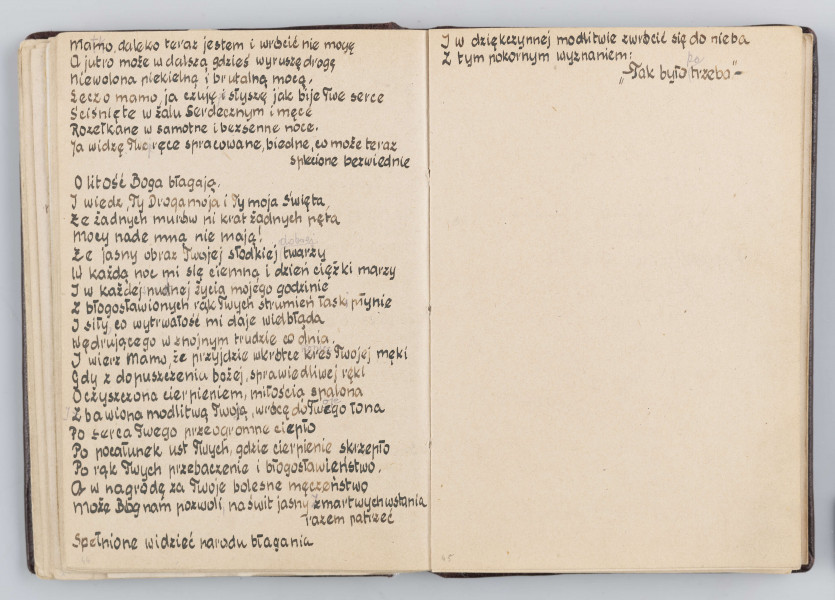 Mamo, daleko teraz jestem i wrócić nie mogę
A jutro może w dalszą gdzieś wyruszę drogę
Niewolona piekielną i brutalną mocą,
Lecz o mamo, ja czuję i słyszę jak bije Twe serce
Ściśnięte w żalu serdecznym i męce
Rozełkane w samotne i bezsenne noce.
Ja widzę Twe ręce spracowane, biedne, co może teraz
splecione bezwiednie
O litość Boga błagają.
I wiedz, Ty Droga moja i Ty moja Święta,
Że żadnych murów ni krat żadnych pęta
Mocy nade mną nie mają!
Że jasny obraz Twojej słodkiej twarzy
W każdą noc mi się ciemną i dzień ciężki marzy
I w każdej nudnej życia mojego godzinie
Z błogosławionych rąk Twych strumień łaski płynie
I siły, co wytrwałość mi daje wielbłąda
Wędrującego w znojnym trudzie co dnia.
I wierz Mamo, że przyjdzie wkrótce kres Twojej męki
Gdy z dopuszczenia bożej, sprawiedliwej ręki
Oczyszczona cierpieniem, miłością spalona
Zbawiona modlitwą Twoją, wrócę do Twego łona
Po serca Twego przeogromne ciepło
Po pocałunek ust Twych, gdzie cierpienie skrzepło
Po rąk Twych przebaczenie i błogosławieństwo.
A w nagrodę za Twoje bolesne męczeństwo
Może Bóg nam pozwoli, na świt jasny zmartwychwstania
razem patrzeć
Spełnione widzieć narodu błagania
I w dziękczynnej modlitwie zwrócić się do nieba
Z tym pokornym wyznaniem:
„Tak było trzeba"-
45